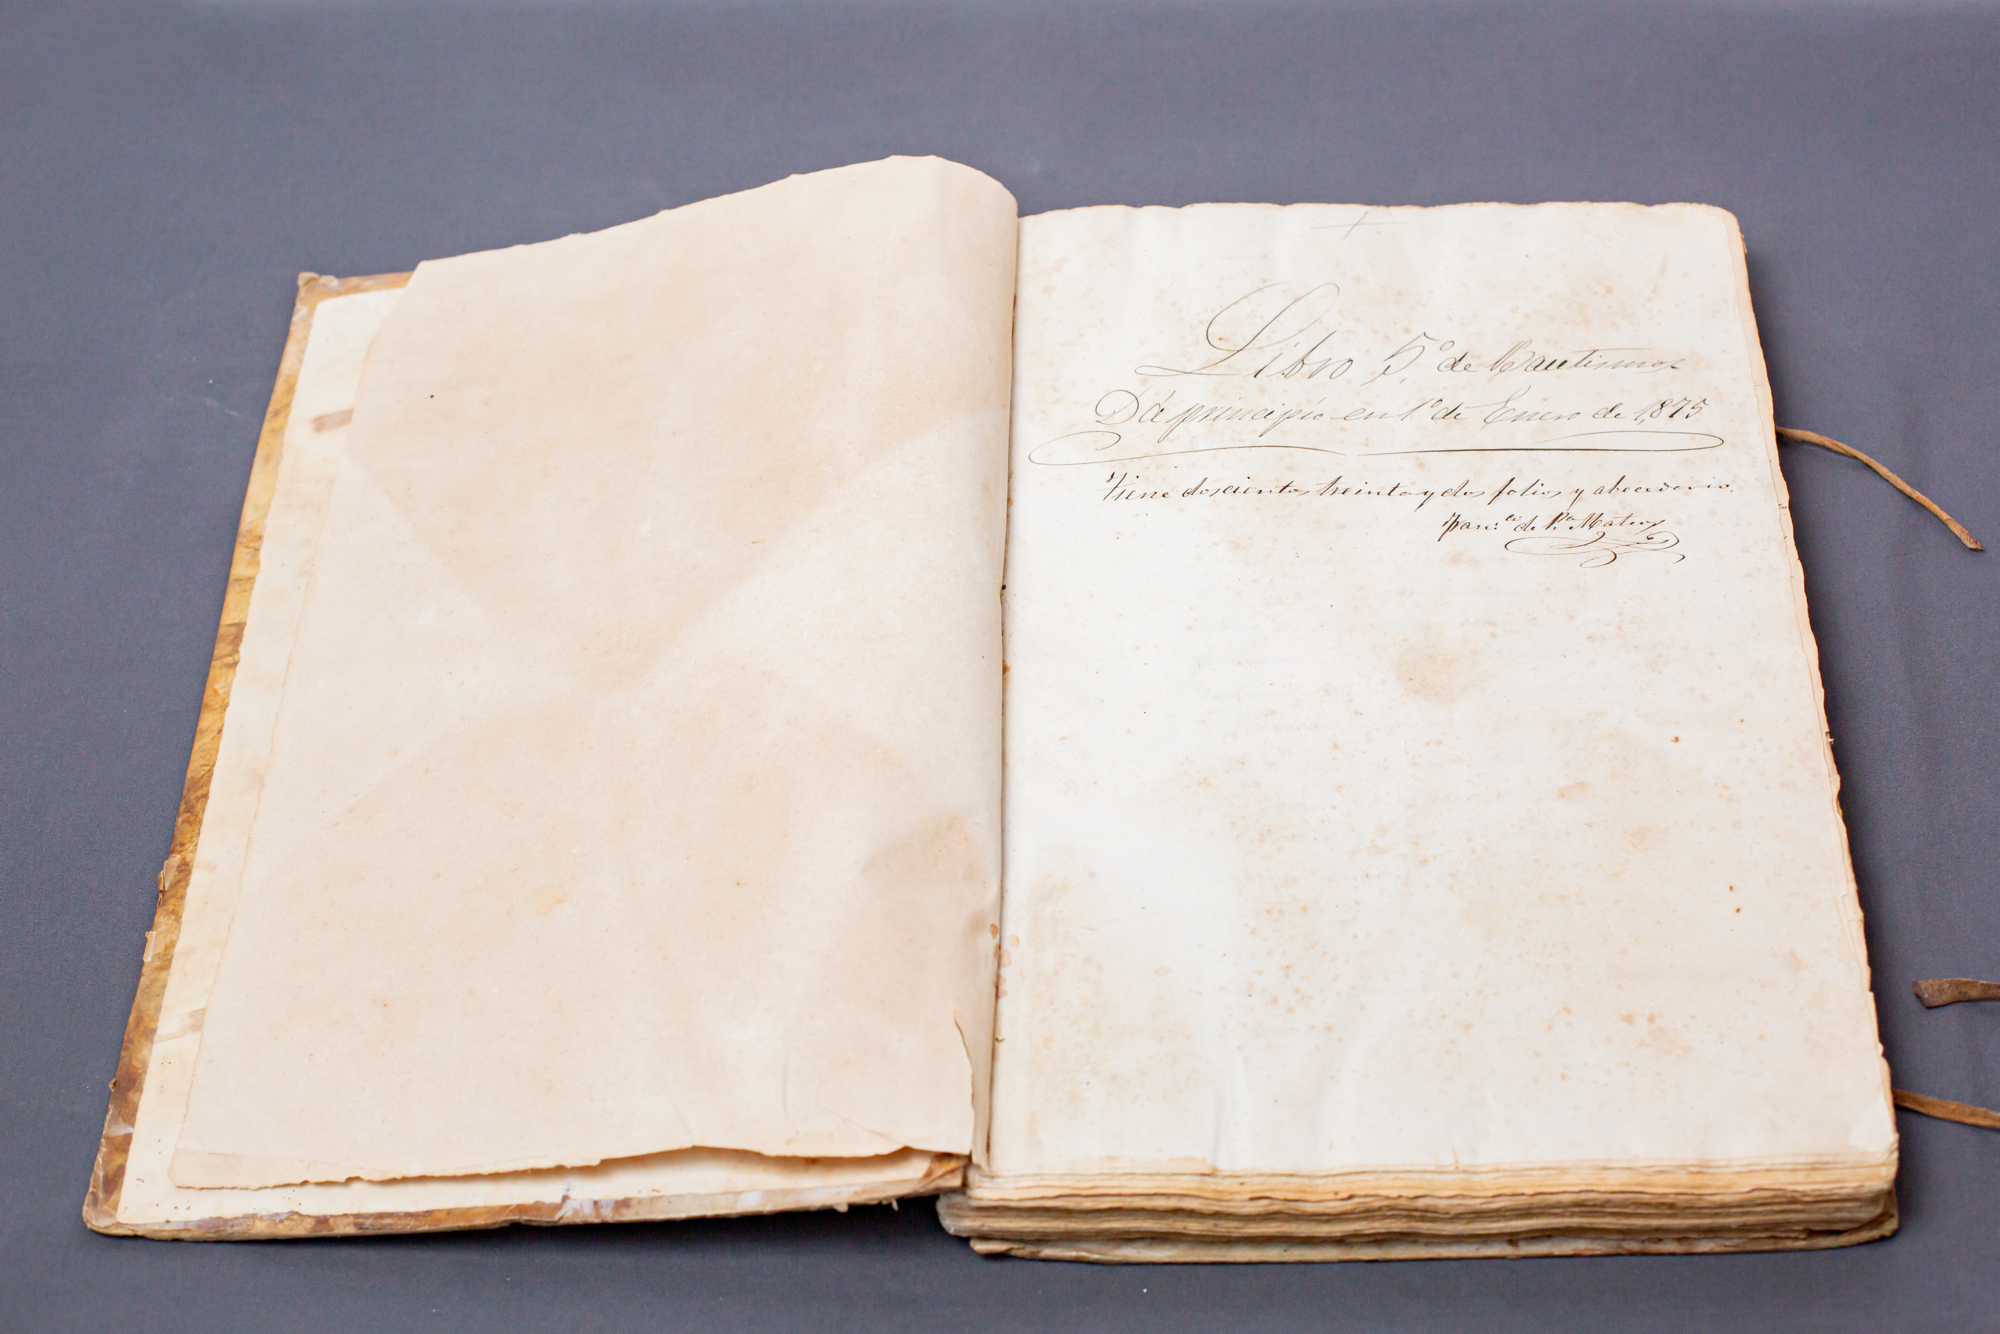 Libro 5.º de Bautismos
Dá principio en 1.º de Enero de 1,875
Tiene doscientos treinta y dos folios y abecedario.
de P.ª Mateos